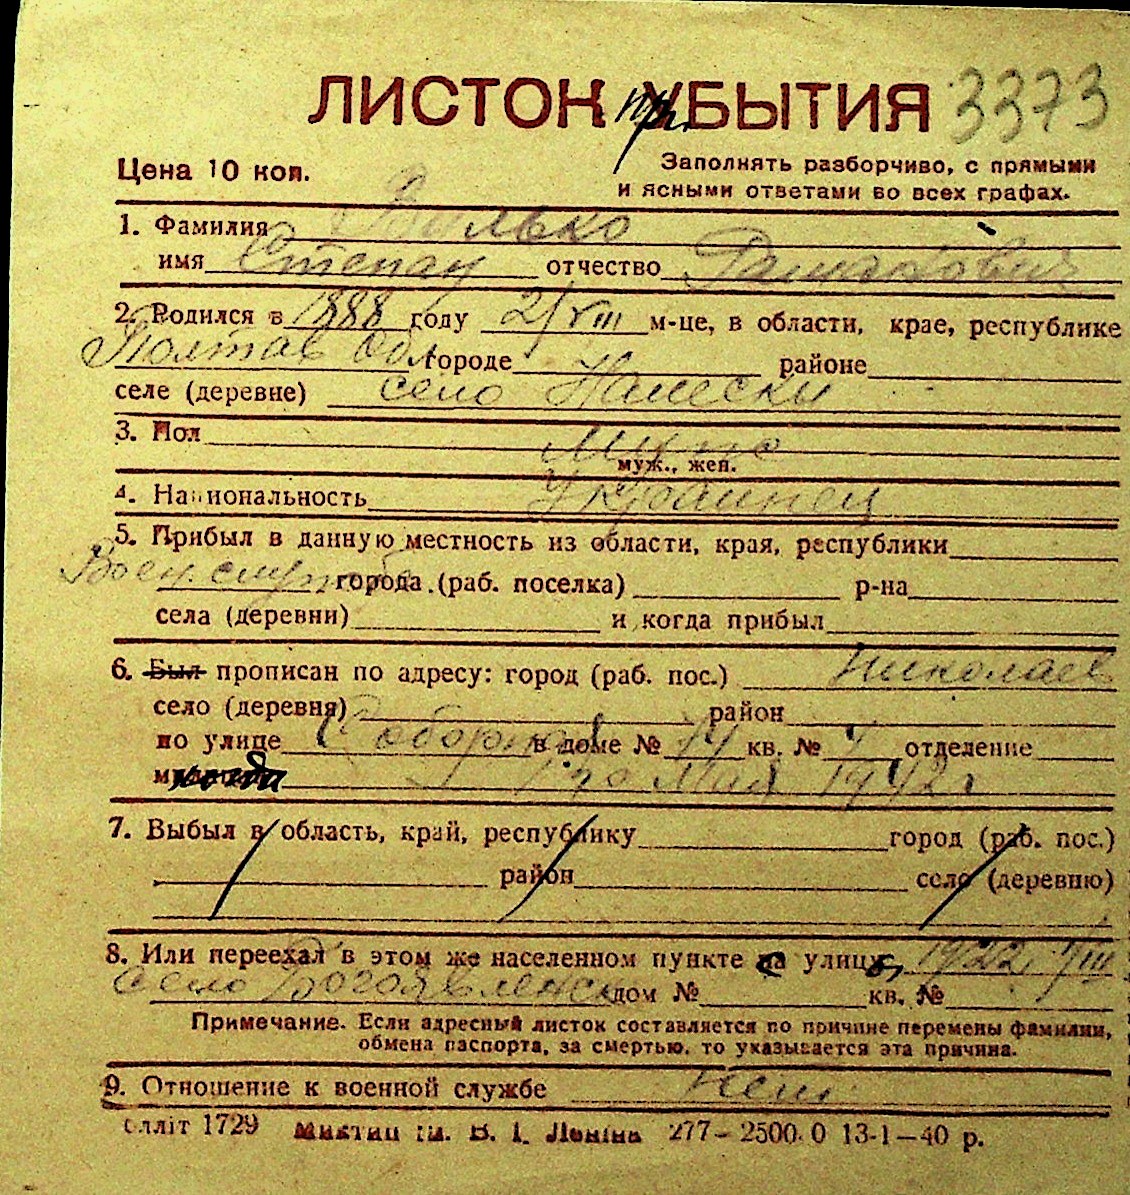 ЛИСТОК при УБЫТИЯ 3373
Цена 10 коп.
Заполнять разборчиво, с прямыми
и ясными ответами во всех графах.
1. Фамилия Вулько
имя Степан отчество
2. Родился в 1888 году 2/VIII м-це, в области, крае, республике
Полтав обл. городе районе
селе (деревне) село
3. Пол Муж
муж., жен.
4. Национальность Украинец
5. Прибыл в данную местность из области, края, республики
Воен. службе города (раб. поселка) р-на
села (деревни) и когда прибыл
6. Был прописан по адресу: город (раб. пос.) Николаев
село (деревня) район
по улице Соборная в доме № кв. № отделение
когда до Мая 1942 г
7. Выбыл в область, край, республику город (раб. пос.)
район село (деревню)
8. Или переехал в этом же населенном пункте на улицу 1922 VIII
село Богоявленск дом № кв. №
Примечание. Если адресный листок составляется по причине перемены фамилии,
обмена паспорта, за смертью, то указывается эта причина.
9. Отношение к военной службе нет
лліт 1729 ім. В. І. Леніна 277—2500.0 13-1—40 р.